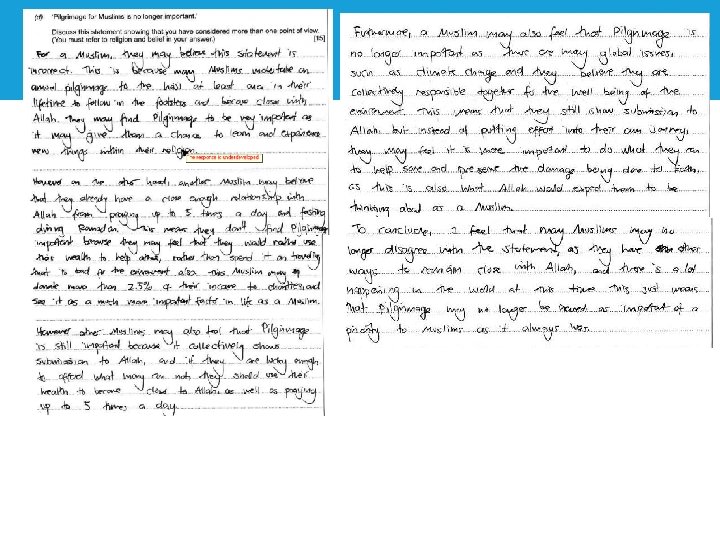 'Pilgrimage for Muslims is no longer important.'
Discuss this statement showing that you have considered more than one point of view.
(You must refer to religion and belief in your answer.) [15]
For a Muslim, they may believe this statement is
incorrect. This is because many Muslims undertake an
annual pilgrimage to the hajj at least once in their
lifetime to follow in the footsteps and become close with
Allah. They may find Pilgrimage to be very important as
it may give them a chance to learn and experience
new things within their religion.
The response is underdeveloped
However on the other hand, another Muslim may believe
that they already have a close enough relationship with
Allah from praying up to 5 times a day and fasting
during Ramadan. This means they don't find Pilgrimage
important because they may feel that they would rather use
their wealth to help others, rather than spend it on travelling
that is bad for the environment also. This Muslim may
donate more than 2.5% of their income to charities, and
see it as a much more important factor in life as a Muslim.
However other Muslims may also feel that Pilgrimage
is still important because it collectively shows
submission to Allah, and if they are lucky enough
to afford what many can not, they should use their
wealth to become close to Allah, as well as praying
up to 5 times a day.
Furthermore, a Muslim may also feel that Pilgrimage is
no longer important as there are many global issues,
such as climate change and they believe they are
collectively responsible together for the well being of the
environment. This means that they still show submission to
Allah but instead of putting effort into their own journey,
they may feel it is more important to do what they can
to help save and preserve the damage being done to Earth,
as this is also what Allah would expect them to be
thinking about as a Muslim.
To conclude, I feel that many Muslims may no
longer disagree with the statement, as they have other
ways to remain close with Allah, and there is a lot
happening in the world at this time this just means
that Pilgrimage may no longer be as important of a
priority to Muslims as it always was.